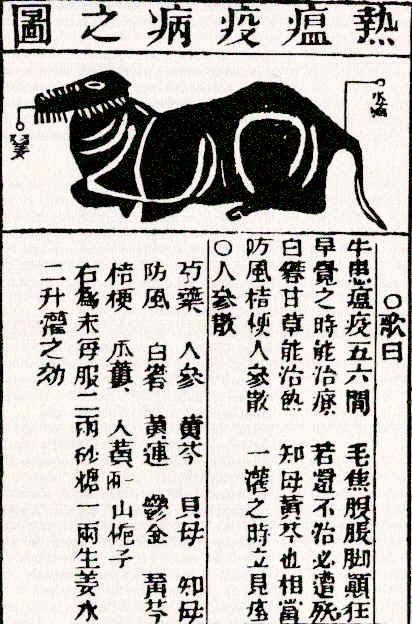 熱瘟疫病之圖
○歌曰
牛患瘟疫五六間 毛焦腹脹脚顛狂
早覺之時能治療 若還不治必遭
白礬甘草能治熱 知母黃芩也相當
防風桔梗人參散 一灌之時立見痊
○人參散
芍藥 人參 黃芩 貝母 知母
防風 白礬 黃連 鬱金 黃芩
桔梗 瓜蔞 黃 山梔子
右為末每服二兩砂糖一兩生姜水
二升灌之効